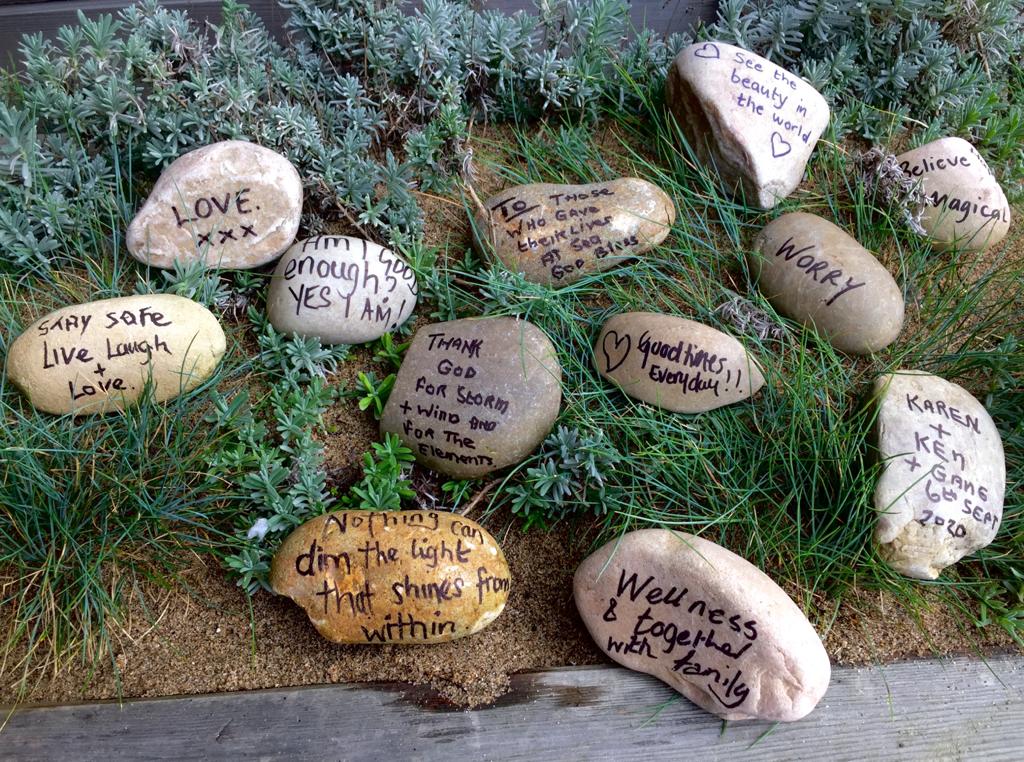 See the
beauty in
the world
Believe in
Magical
LOVE.
xxx
To Those
Who Gave
their Lives
At Sea
God Bless
WORRY
Am I Good
enough?
YES I AM!
Stay safe
Live Laugh
+
Love.
THANK
GOD
FOR STORM
+ WIND AND
FOR THE
Elements.
Good times
Everyday!!
KAREN
+
KEN
+ GANG
6th SEPT
2020
Nothing can
dim the light
that shines from
within
Wellness
& together
with family